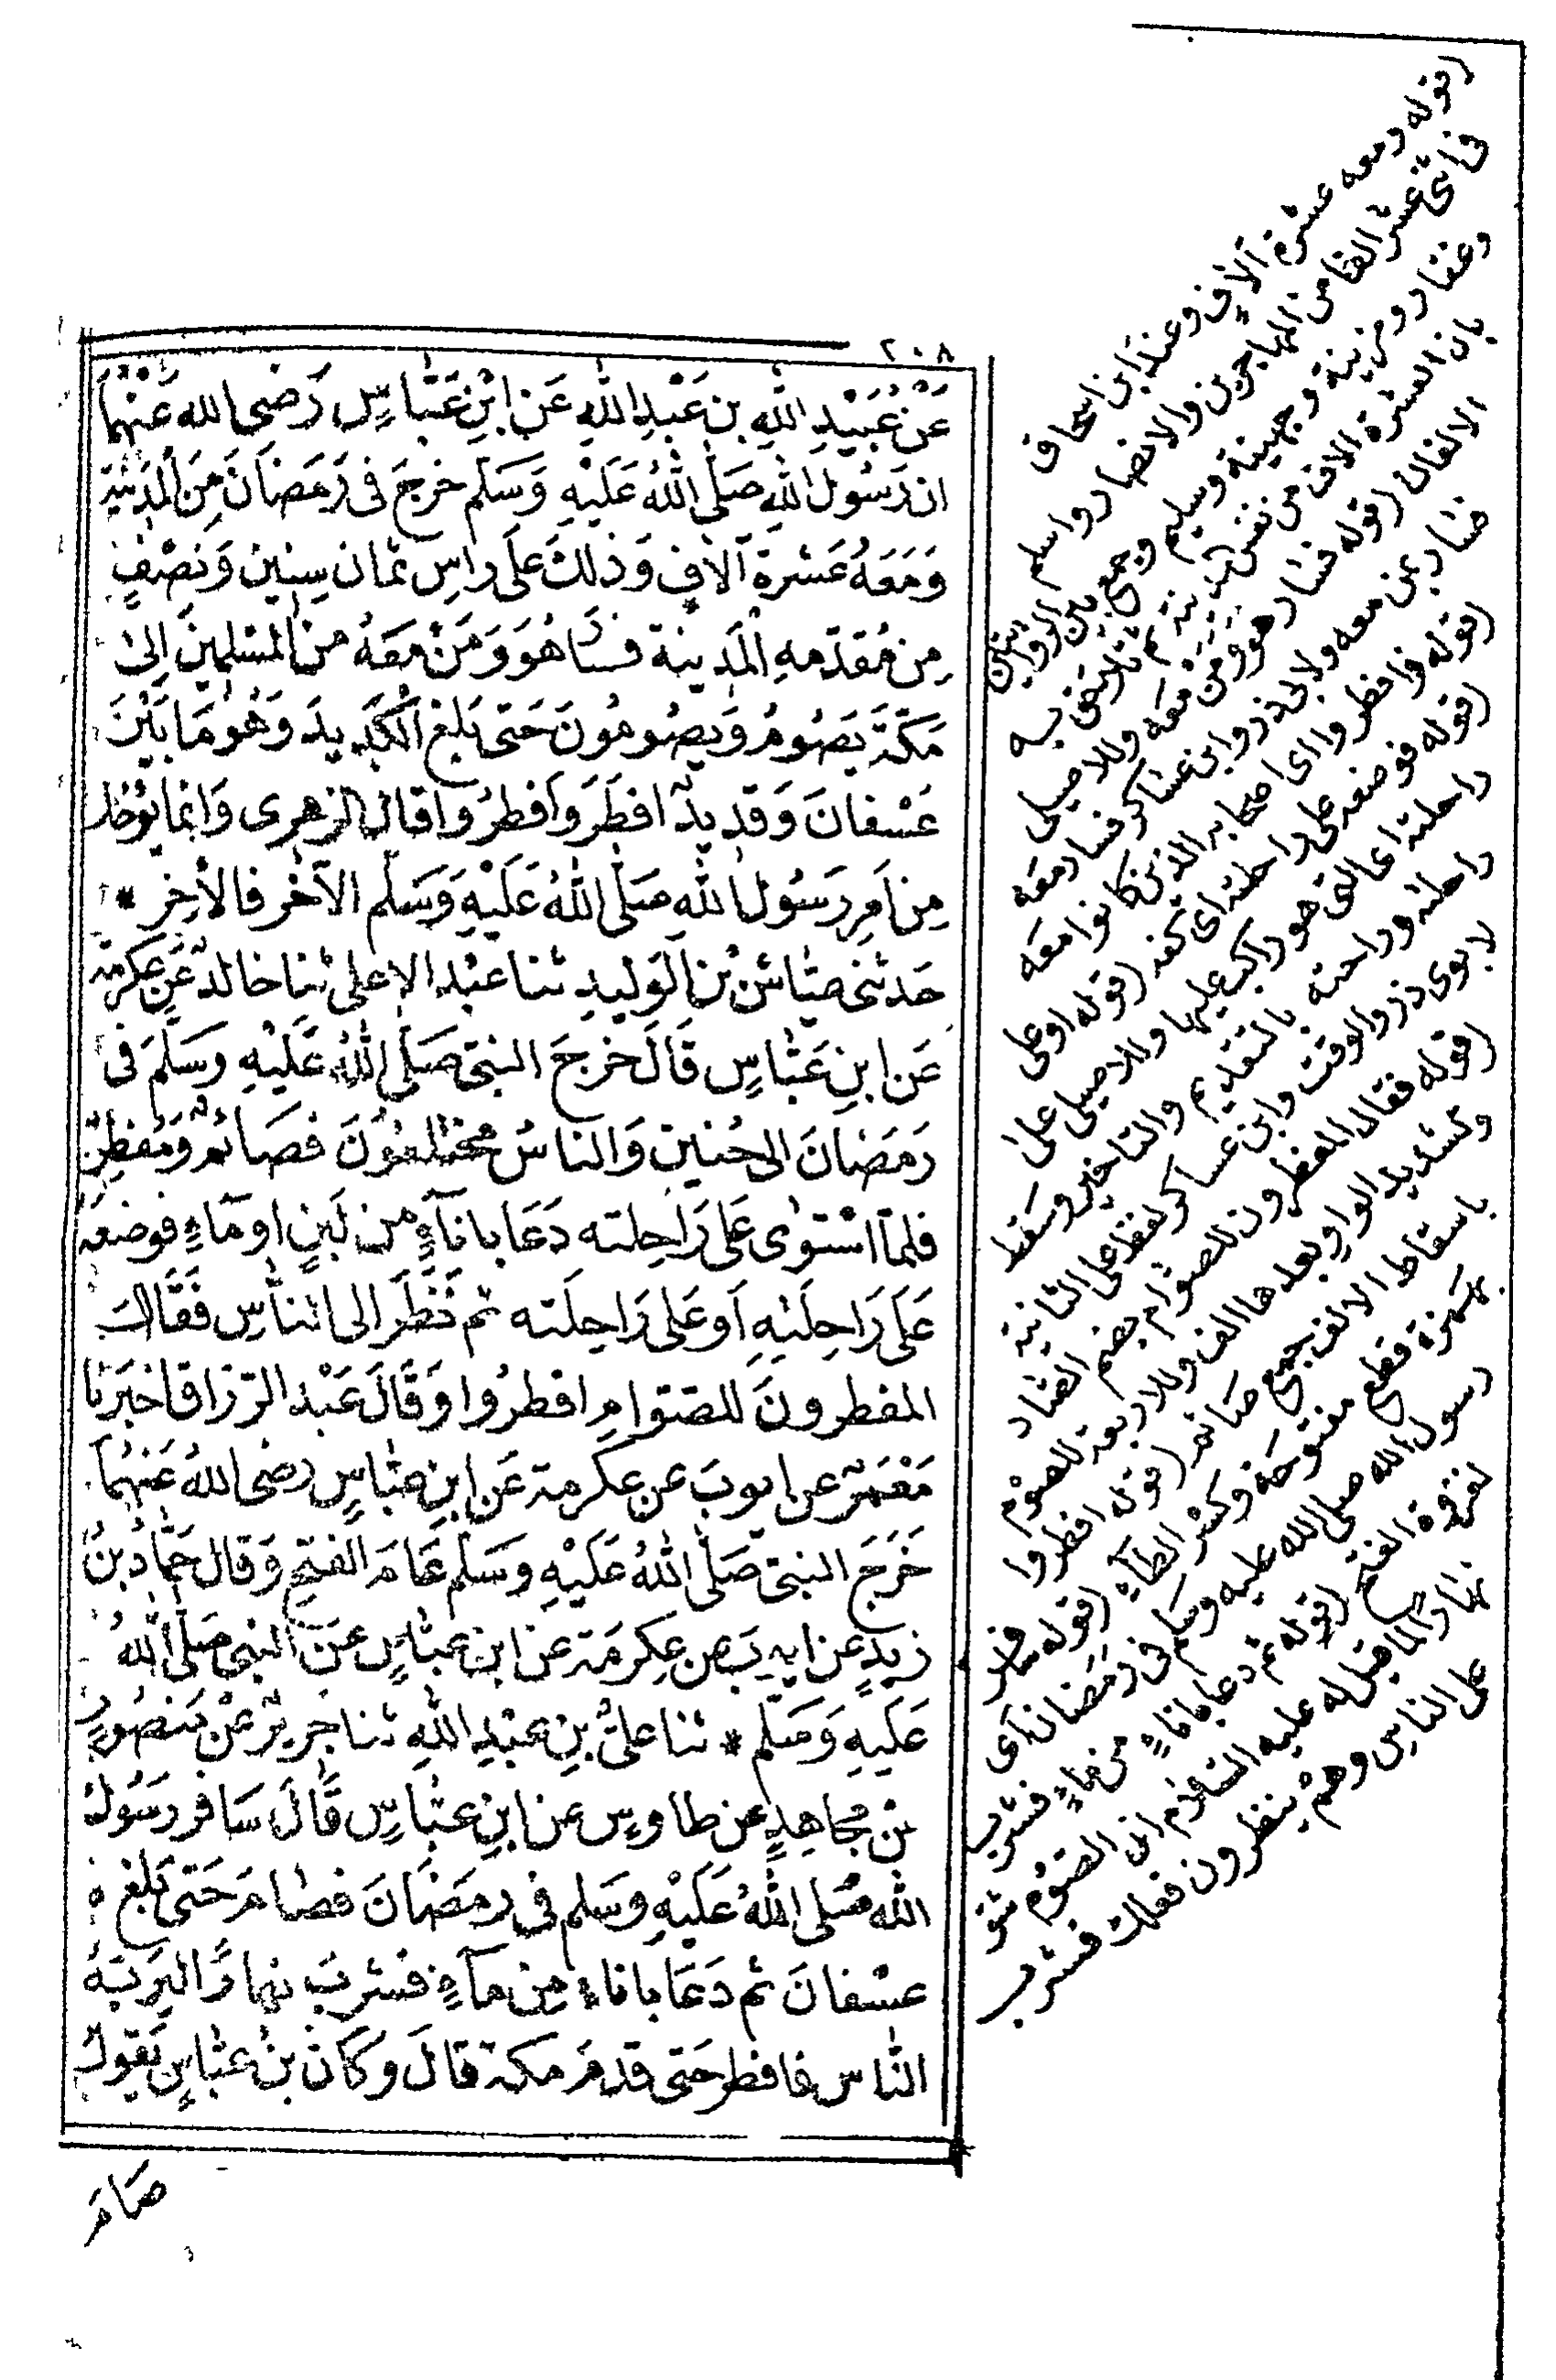 ٢٠٨
عَنْ عُبَيْدِ اللهِ بن عَبْدِ اللهِ عَن ابْنِ عَبَّاسٍ رَضِى الله عَنْهُمَا
ان رَسُول اللهِ صَلَّى اللهُ عَلَيْهِ وَسَلَّم خرجَ فى رَمَضَانَ مِنَ المَدِينَة
وَمَعَهُ عَشرة آلافٍ وَذلك عَلَى راسِ ثمان سِنِين وَنصْفٍ
مِن مُقدّمهِ المَدِينة فسَارَ هُوَ وَمَنْ مَعَهُ من المسْلمِينَ الى
مَكّةَ يَصُومُ وَيصُومُونَ حَتى بَلغ الكَدِيدَ وَهُو مَا بَيْنَ
عَسْفانَ وَقدِيدٍ افطَر وَافطرُوا قال الزهرى وَانما يؤخذ
مِن اَمِر رَسُول اللهِ صَلَّى اللهُ عَلَيْهِ وَسَلّم الآخر فالآخِر *
حَدثنى عيّاش بْن الوَليدِ ثنا عبْد الاعلى ثنا خالد عَن عكرمة
عَن ابنِ عَبّاسٍ قَالَ خرجَ النبىّ صَلّى اللهُ عَلَيْهِ وسَلّمَ فى
رَمَضَانَ الى حُنين وَالناسُ مختلفُونَ فصَائمٌ وَمُفطِرٌ
فلمّا اسْتوى عَلى رَاحِلته دَعَا باناءٍ من لَبنٍ او مآءٍ فوضعَه
عَلَى رَاحِلَتِهِ اَو عَلى رَاحِلَته ثم نَظَرَ الى النّاسِ فَقَالَ
المفطرونَ للصّوامِ افطرُوا وَقَالَ عَبْد الرّزاق اخبَرنا
مَعْمَرٌ عن ايوبَ عن عكرمة عَن ابنِ عبّاسٍ رضى اللهُ عَنهُمَا
خَرَجَ النبىّ صَلّى اللهُ عَلَيْهِ وسَلّم عَامَ الفتحِ وَقال حَمّادُ بنُ
زيدٍ عن ايوبَ عن عِكرمَة عن ابنِ عبّاسٍ عَن النبى صَلّى اللهُ
عَلَيهِ وَسَلّم * ثنا علىّ بنِ عبْدِ اللهِ ثنا جَريرٌ عَنْ مَنصُورٍ
عَن مجاهِدٍ عن طاوسٍ عن ابنِ عبّاسٍ قَالَ سَافر رَسُولُ
الله صَلى اللهُ عَلَيْهِ وسَلم فى رمَضَانَ فصَامَ حَتى بَلغ
عسْفانَ ثم دَعَا باناء مِن مآءٍ فشربَ نهارًا ليرَيَهُ
النّاس فافطر حَتى قدمَ مكة قالَ وكَان بنُ عبّاسٍ يَقول
صَامَ
(قوله ومعه عشرة آلافٍ وعند ابن اسحاق
فى اثنى عشر الفا من المهاجرين والانصار واسلم
وغفار ومزينة وجهينة وسليم وجمع بين الروايتين
بان العشرة الاف من نفس المدينة ثم تلاحق به
الالفان (قوله فسار هو ومَن معَه وللاصيلى
فسار بمن معه ولابى ذر وابن عساكر فسار معَه
(قوله وافطروا اى اصحابه الذين كانوا معَه
(قوله فوضعه على راحلته اى كفه (قوله او على
راحلته اى التى هو راكب عليها وللاصيلى على
راحلته وراحته بالتقديم والتاخير وسَقط
لابوى ذر والوقت وابن عساكر لفظ على الثانية
(قوله فقال المفطرون للصوّام بضم الصّاد
وتشديد الواو بعدها الف وللاربعة للصوّم
باسقاط الالف جمع صائم (قوله افطروا
بهَمزة قطع مفتوحَة وكسْر الطاءِ (قوله سَافر
رسول الله صلى الله عليه وسلم فى رمَضان اى
لغزوة الفتح (قوله ثم دعا باناءٍ من ماءٍ فشرب
نهارًا لما قيل له عليه السّلام ان الصّوم شق
على الناسِ وهمْ ينظرون فعلك فشرب